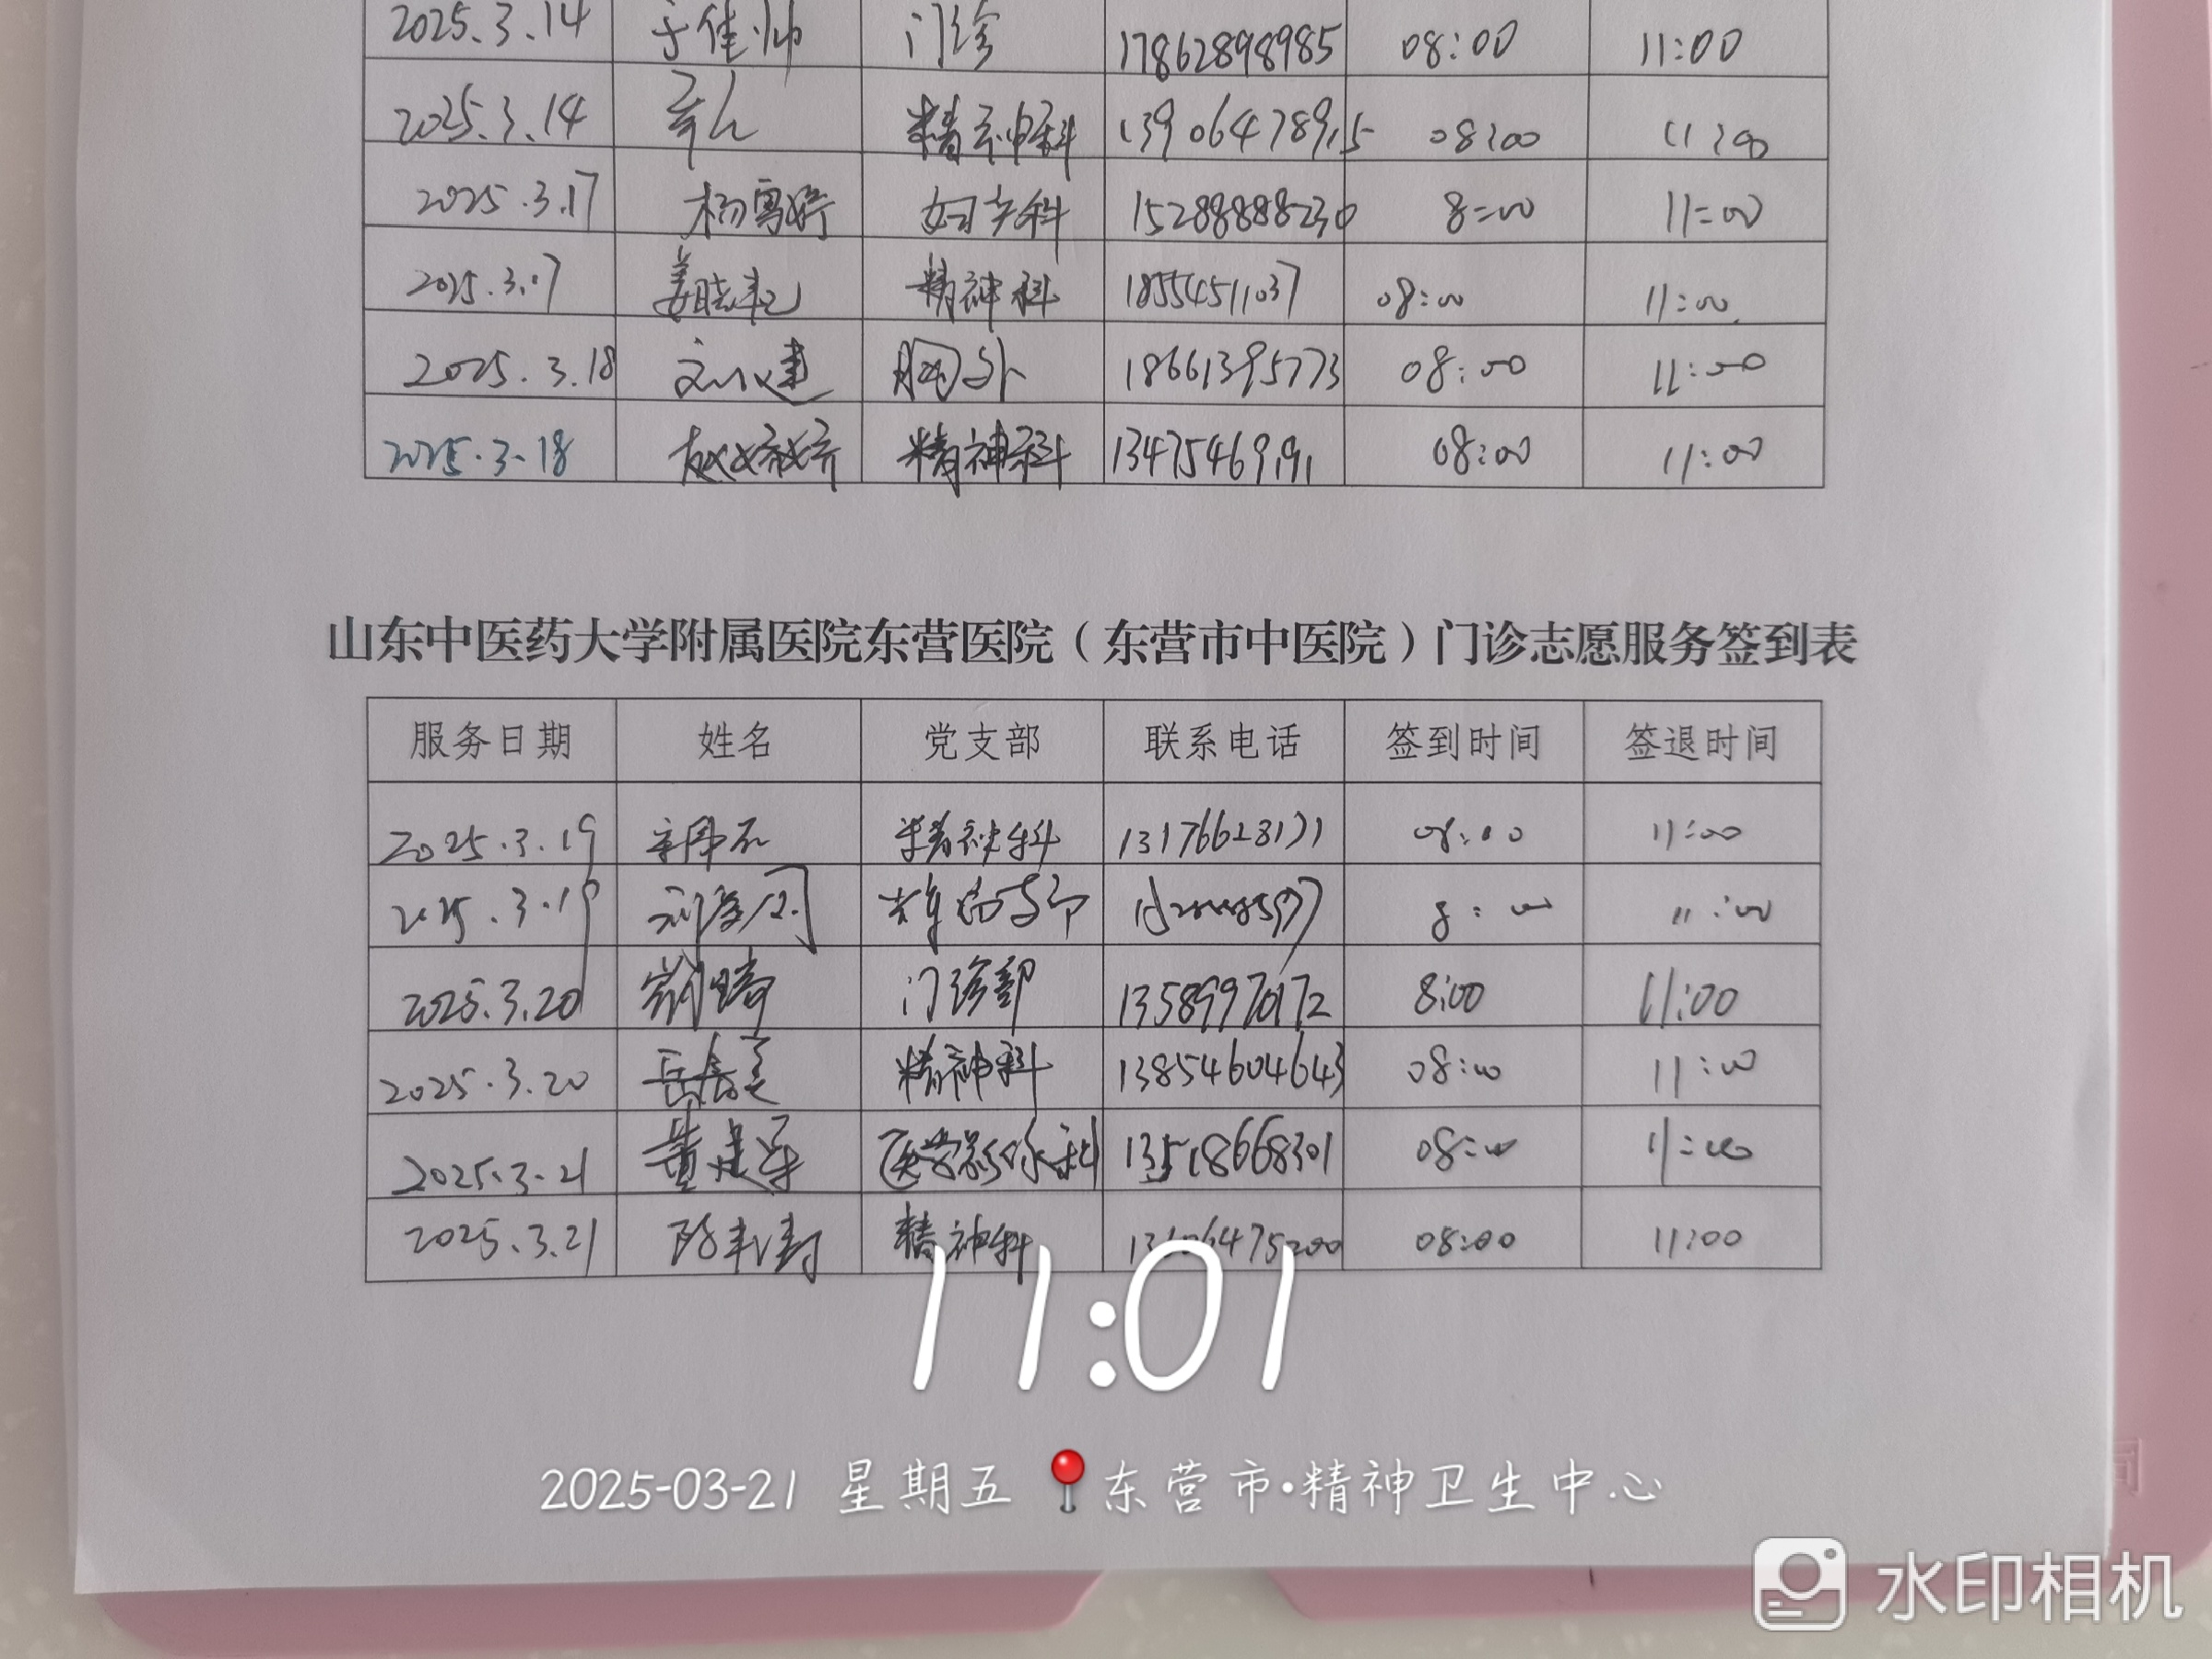 2025.3.14 于佳帅 门诊 17862898985 08:00 11:00
2025.3.14 精神科 13906478915 08:00 11:00
2025.3.17 杨雪婷 妇产科 15288888230 8:00 11:00
2025.3.17 姜晓艳 精神科 18554511037 08:00 11:00
2025.3.18 刘建 胸外 18661395773 08:00 11:00
2025.3.18 赵婷婷 精神科 13475469191 08:00 11:00
山东中医药大学附属医院东营医院（东营市中医院）门诊志愿服务签到表
服务日期 姓名 党支部 联系电话 签到时间 签退时间
2025.3.19 精神科 13176628171 08:00 11:00
2025.3.19 8:00 11:00
2025.3.20 门诊部 13589970172 8:00 11:00
2025.3.20 精神科 13854604643 08:00 11:00
2025.3.21 董建军 医学影像科 08:00 11:00
2025.3.21 精神科 08:00 11:00
11:01
2025-03-21 星期五 东营市·精神卫生中心
水印相机